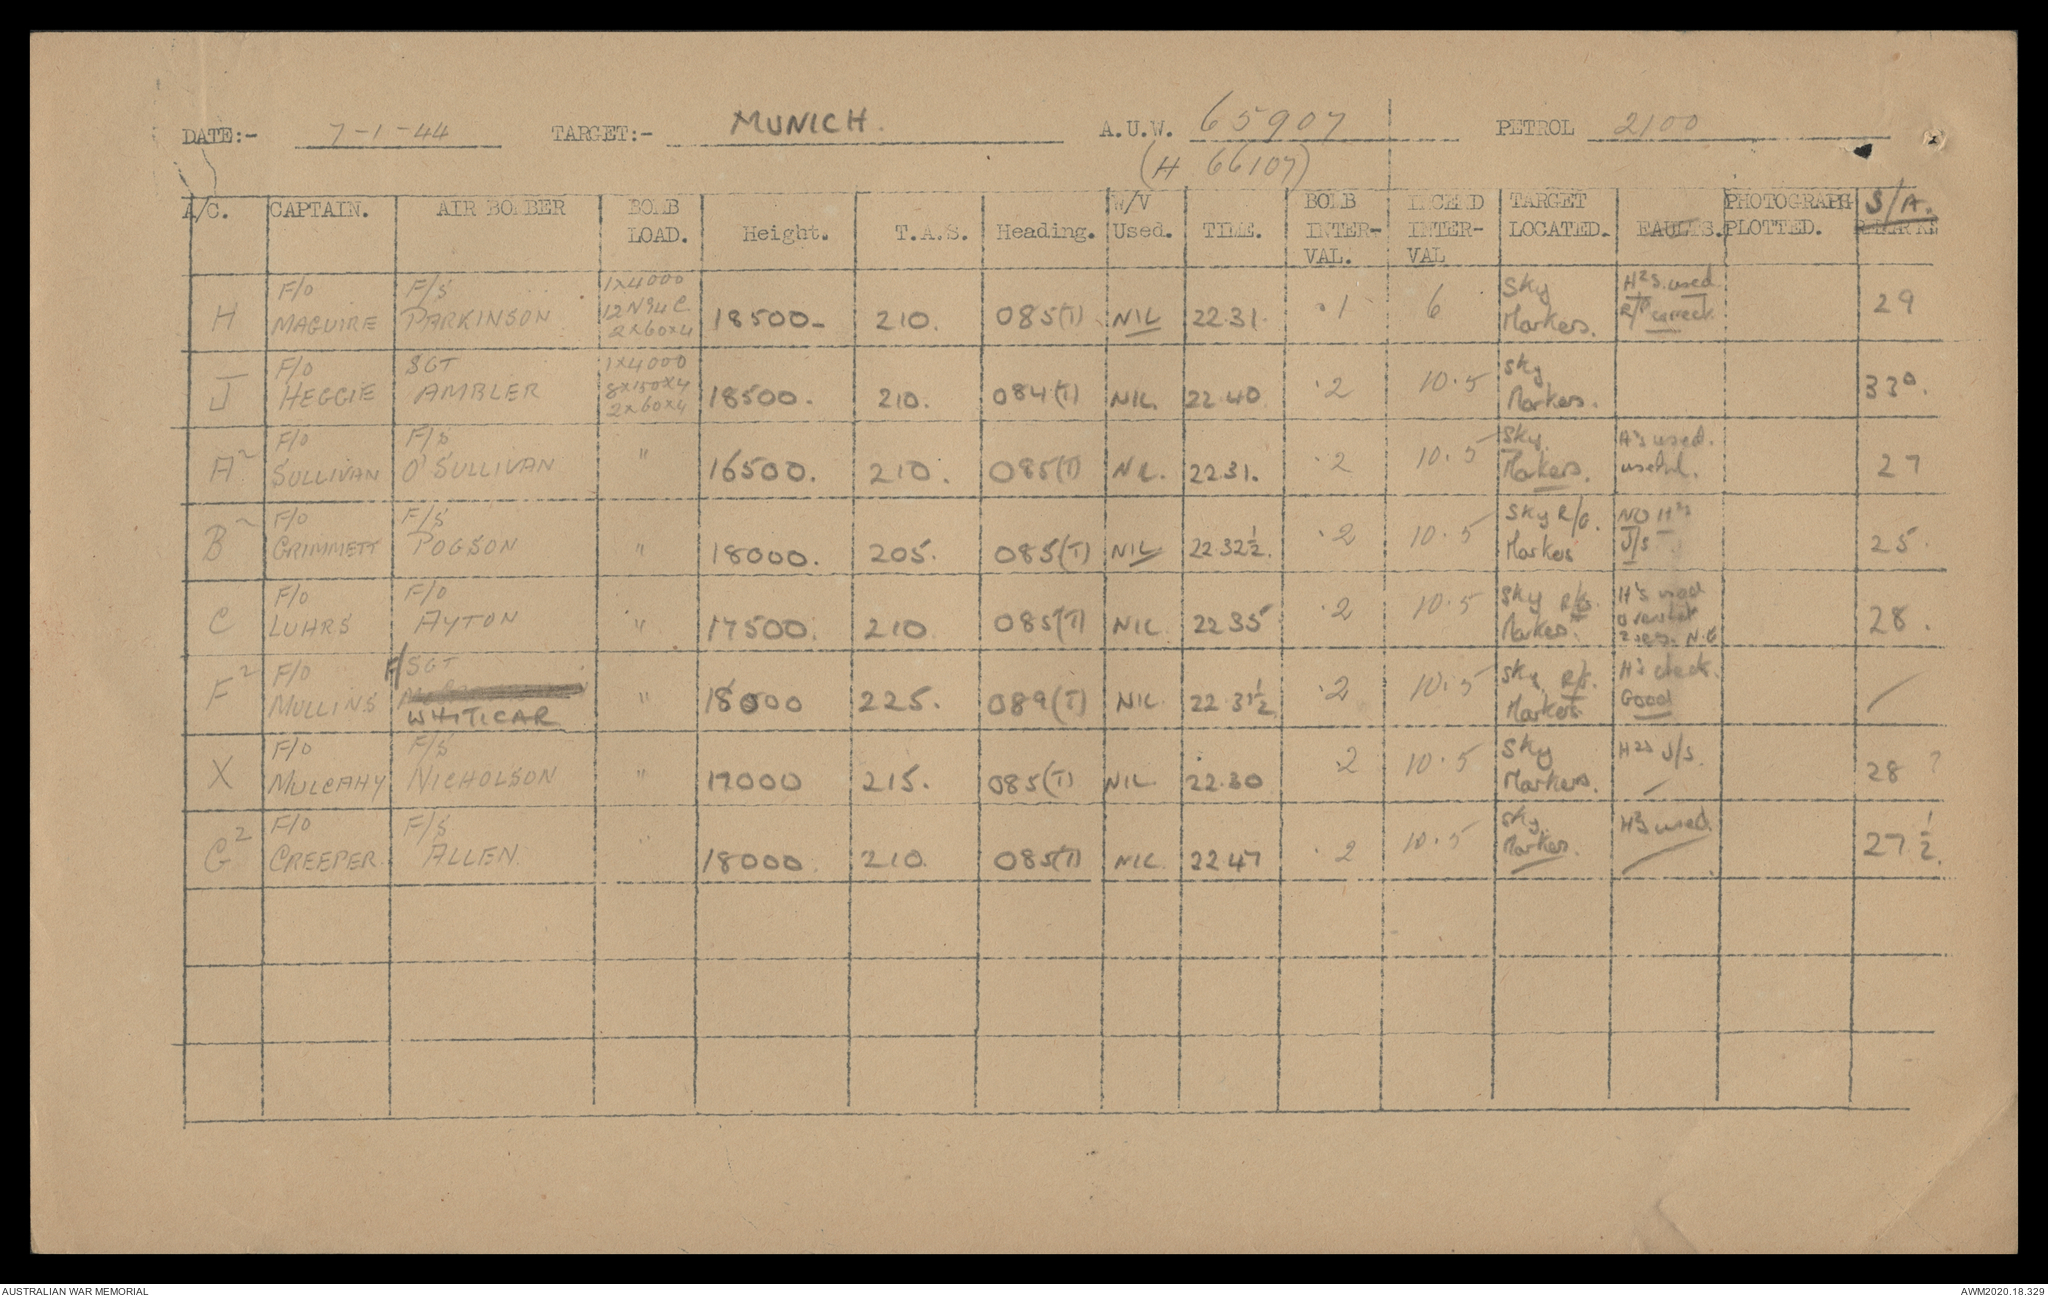 DATE:- 7-1-44 TARGET:- MUNICH. A.U.W. 65907 PETROL 2100
(H 66107)
A/C. CAPTAIN. AIR BOMBER BOMB LOAD. Height. T.A.S. Heading. W/V Used. TIME. BOMB INTER- VAL. INCEND INTER- VAL TARGET LOCATED. FAULTS. PHOTOGRAPH PLOTTED. S/A.
H F/O MAGUIRE F/S PARKINSON 1x4000 12 Nº4 C 2x60x4 18500- 210. 085(T) NIL 22.31. .1 6 Sky Markers. H2S used R/P correct. 29
J F/O HEGGIE SGT AMBLER 1x4000 8x150x4 2x60x4 18500. 210. 084(T) NIL. 22.40 .2 10.5 Sky Markers. 330.
A2 F/O SULLIVAN F/S O'SULLIVAN " 16500. 210. 085(T) NIL. 22.31. .2 10.5 Sky Markers. used. useful. 27
B2 F/O GRIMMETT F/S POGSON " 18000. 205. 085(T) NIL 22.32½. .2 10.5 Sky R/G. Markers NO H2S J/S 25.
C F/O LUHRS F/O AYTON " 17500. 210 085(T) NIL. 22 35 .2 10.5 Sky Markers. used 28.
F2 F/O MULLINS F/SGT WHITICAR " 18000 225. 089(T) NIL. 22.31½ .2 10.5 Sky Markers check. Good /
X F/O MULCAHY F/S NICHOLSON " 17000 215. 085(T) NIL 22.30 .2 10.5 Sky Markers. H2S J/S. 28 ?
G2 F/O CREEPER F/S ALLEN. " 18000 210 085(T) NIL. 22 47 .2 10.5 Sky Markers. H2S used. 27½.
AUSTRALIAN WAR MEMORIAL AWM2020.18.329